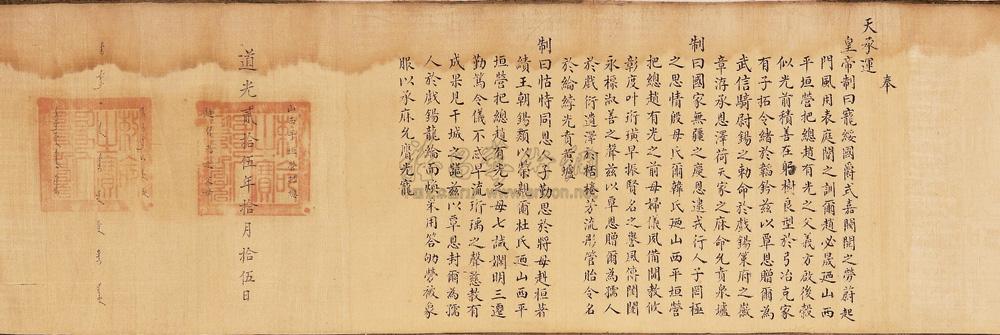 奉
天承運
皇帝制曰寵綏國爵式嘉閥閱之勞蔚起
門風用表庭闈之訓爾趙必晟廼山西
平垣營把總趙有光之父義方啟後穀
似光前積善在躬樹良型於弓冶克家
有子拓令緒於韜鈐兹以覃恩贈爾為
武信騎尉錫之勅命於戲錫策府之徽
章洊承恩澤荷天家之庥命允賁泉壚
制曰國家無疆之慶恩逮戎行人子罔極
之思情殷母氏爾韓氏廼山西平垣營
把總趙有光之前母婦儀夙備閫教攸
彰度叶珩璜早振賢名之譽風傳閨閫
永樑淑善之聲兹以覃恩贈爾為孺人
於戲衍遺澤於桮棬芳流彤管貽令名
於綸綍光賁黃壚
制曰怙恃同恩人子勤思於將母赳桓著
績王朝錫類以榮親爾杜氏廼山西平
垣營把總趙有光之母七誡嫻明三遷
勤篤令儀不忒早流珩瑀之聲慈教有
成果見干城之器兹以覃恩封爾為孺
人於戲錫龍綸而煥采用答劬勞被象
服以承庥允膺光寵
道光貳拾伍年拾月拾伍日